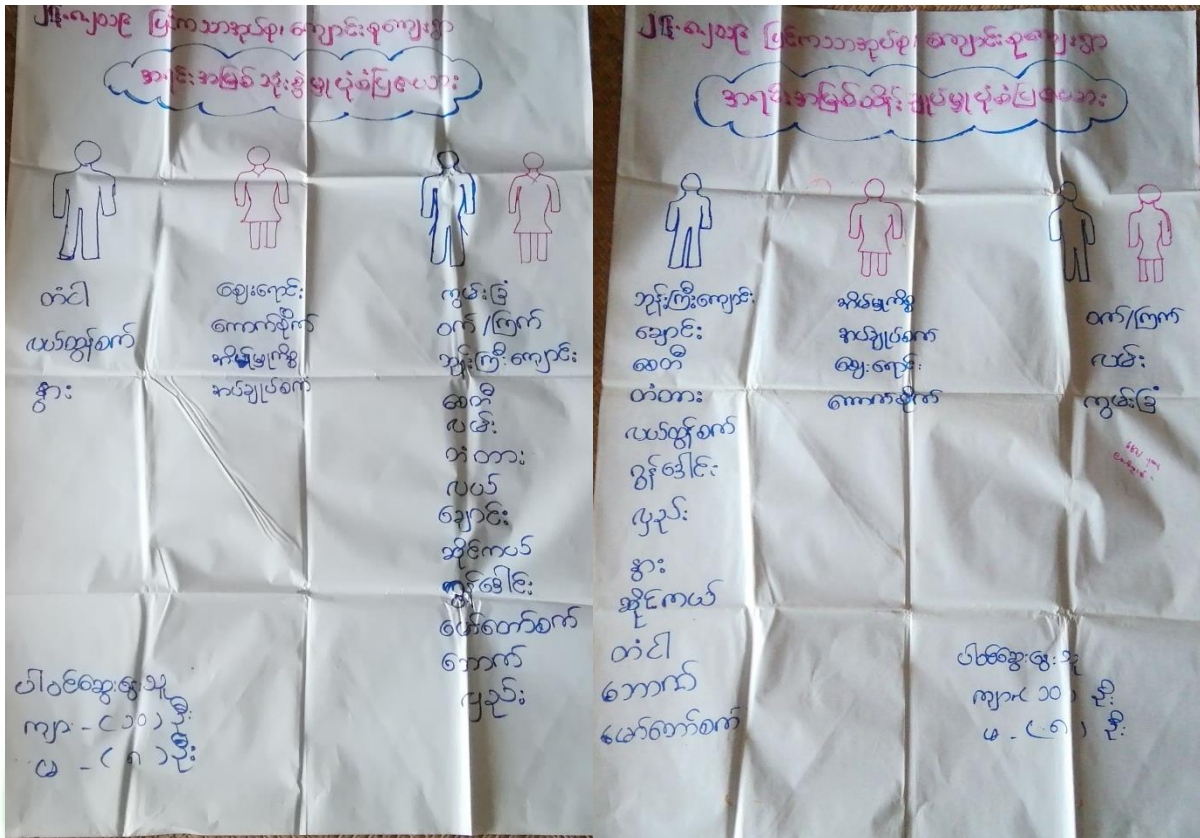 ပြင်ကသာအုပ်စု၊ ကျောင်းစုကျေးရွာ
အရင်းအမြစ်သုံးစွဲမှုပုံစံပြဇယား
တံငါ
လယ်ထွန်စက်
နွား
ဈေးရောင်း
ကောက်စိုက်
အိမ်မှုကိစ္စ
အပ်ချုပ်စက်
ကွမ်းခြံ
ဝက်/ကြက်
ဘုန်းကြီးကျောင်း
စေတီ
လမ်း
တံတား
လယ်
ချောင်း
ဆိုင်ကယ်
ဂွန်ဒေါင်း
မော်တော်စက်
ဘောက်
လှည်း
ပါဝင်ဆွေးနွေးသူ
ကျား - (၁၀) ဦး
မ - (၈) ဦး
ပြင်ကသာအုပ်စု၊ ကျောင်းစုကျေးရွာ
အရင်းအမြစ်ထိန်းချုပ်မှုပုံစံပြဇယား
ဘုန်းကြီးကျောင်း
ချောင်း
စေတီ
တံတား
လယ်ထွန်စက်
ဂွန်ဒေါင်း
လှည်း
နွား
ဆိုင်ကယ်
တံငါ
ဘောက်
မော်တော်စက်
အိမ်မှုကိစ္စ
အပ်ချုပ်စက်
ဈေးရောင်း
ကောက်စိုက်
ဝက်/ကြက်
လမ်း
ကွမ်းခြံ
ပါဝင်ဆွေးနွေးသူ
ကျား (၁၀) ဦး
မ - (၈) ဦး